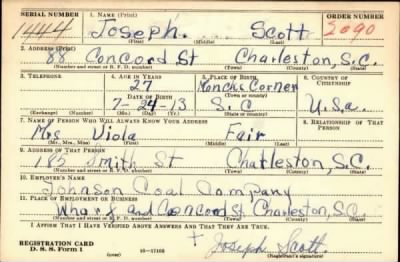 SERIAL NUMBER 1. NAME (Print) ORDER NUMBER
1444 Joseph ... Scott 2090
(First) (Middle) (Last)
2. ADDRESS (Print)
88 Concord St Charleston, S.C.
(Number and street or R. F. D. number) (Town) (County) (State)
3. TELEPHONE 4. AGE IN YEARS 5. PLACE OF BIRTH 6. COUNTRY OF CITIZENSHIP
27 Moncks Corner
DATE OF BIRTH (Town or county)
7-24-13 S.C U.S.a.
(Exchange) (Number) (Mo.) (Day) (Yr.) (State or country)
7. NAME OF PERSON WHO WILL ALWAYS KNOW YOUR ADDRESS 8. RELATIONSHIP OF THAT PERSON
Mrs Viola Fair
(Mr., Mrs., Miss) (First) (Middle) (Last)
9. ADDRESS OF THAT PERSON
182 Smith St Charleston, S.C.
(Number and street or R. F. D. number) (Town) (County) (State)
10. EMPLOYER'S NAME
Johnson Coal Company
11. PLACE OF EMPLOYMENT OR BUSINESS
and Concord St. Charleston, S.C.
(Number and street or R. F. D. number) (Town) (County) (State)
I AFFIRM THAT I HAVE VERIFIED ABOVE ANSWERS AND THAT THEY ARE TRUE.
REGISTRATION CARD + Joseph Scott.
D. S. S. Form 1 (over) 16—17105 (Registrant's signature)